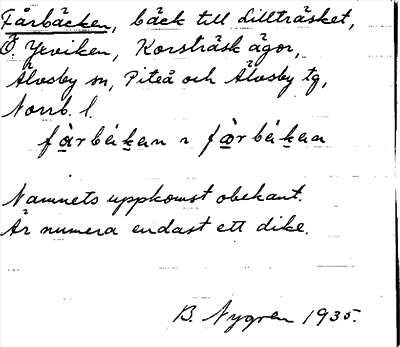 Fårbäcken, bäck till Lillträsket,
Ö Yxviken, Korsträsk ägor,
Älvsby sn, Piteå och Älvsby tg,
Norrb. l.
Namnets uppkomst obekant.
Är numera endast ett dike.
B. Nygren 1935.